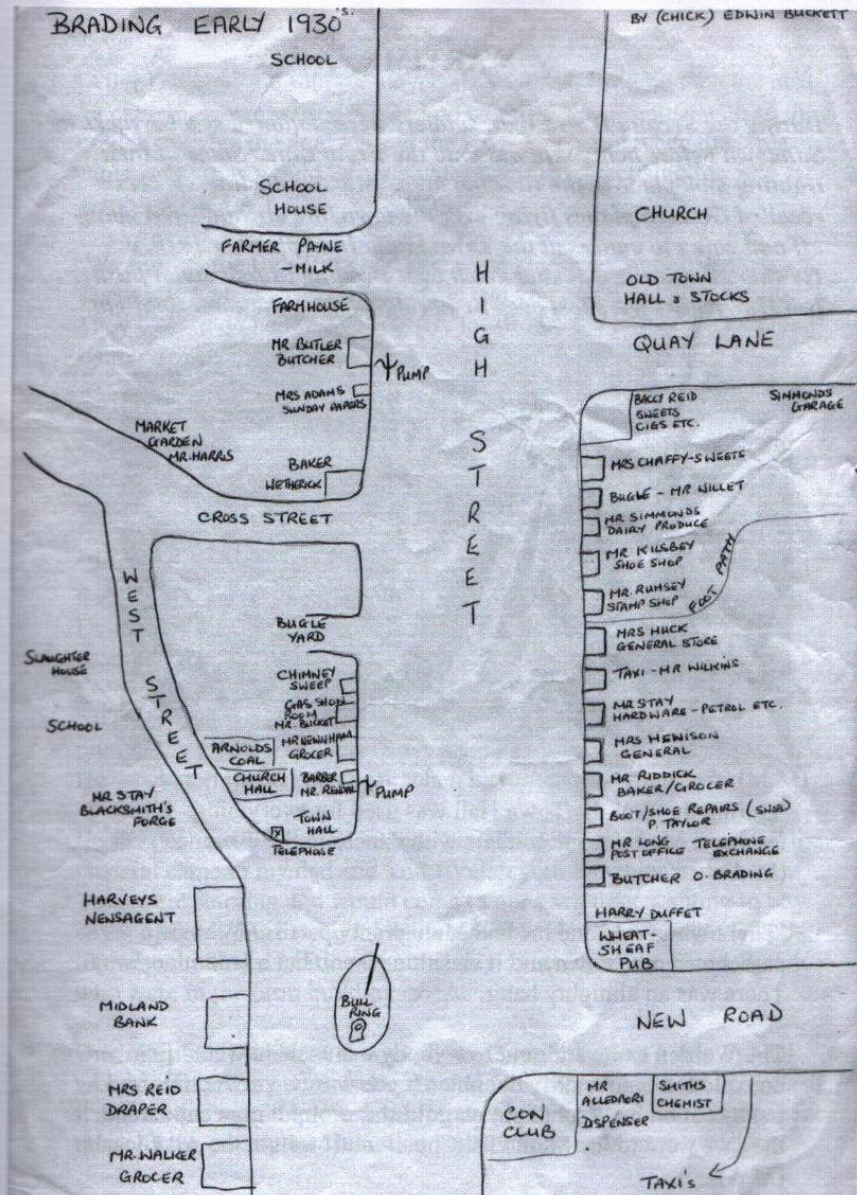 BRADING EARLY 1930'S.
BY (CHICK) EDWIN BUCKETT
SCHOOL
SCHOOL
HOUSE
FARMER PAYNE
- MILK
FARMHOUSE
MR BUTLER
BUTCHER
PUMP
MRS ADAMS
SUNDAY PAPERS
MARKET
GARDEN
MR. HARRIS
BAKER
WETHERICK
CROSS STREET
WEST STREET
BUGLE
YARD
SLAUGHTER
HOUSE
SCHOOL
MR STAY
BLACKSMITH'S
FORGE
CHIMNEY
SWEEP
GAS SHOW
ROOM
MR. BUCKET
ARNOLDS
COAL
MR NEWNHAM
GROCER
CHURCH
HALL
BARBER
MR. RENDAL
PUMP
TOWN
HALL
TELEPHONE
HARVEYS
NENSAGENT
MIDLAND
BANK
MRS REID
DRAPER
MR. WALKER
GROCER
BULL
RING
HIGH STREET
CHURCH
OLD TOWN
HALL & STOCKS
QUAY LANE
BACCY REID
SWEETS
CIGS ETC.
SIMMONDS
GARAGE
MRS CHAFFY - SWEETS
BUGLE - MR WILLET
MR SIMMONDS
DAIRY PRODUCE
MR KILSBEY
SHOE SHOP
MR. RUMSEY
STAMP SHOP
FOOT PATH
MRS HUCK
GENERAL STORE
TAXI - MR WILKINS
MR STAY
HARDWARE - PETROL ETC.
MRS HENISON
GENERAL
MR RIDDICK
BAKER/GROCER
BOOT/SHOE REPAIRS (SNOB)
P. TAYLOR
MR LONG
POST OFFICE TELEPHONE
EXCHANGE
BUTCHER O. BRADING
HARRY DUFFET
WHEAT-
SHEAF
PUB
NEW ROAD
CON
CLUB
MR
DISPENSER
SMITHS
CHEMIST
TAXI'S